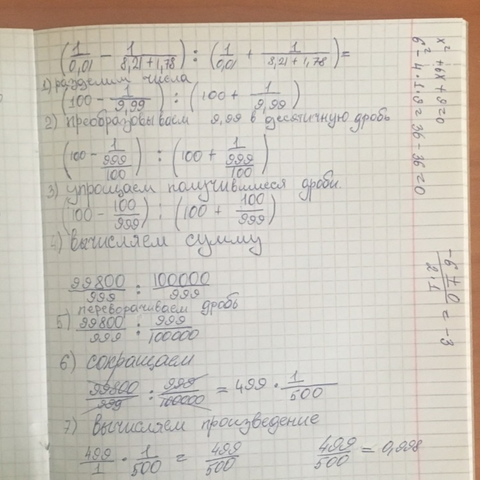 (1/0,01 - 1/(8,21+1,78)) : (1/0,01 + 1/(8,21+1,78)) =
1) разделим числа
(100 - 1/9,99) : (100 + 1/9,99)
2) преобразовываем 9,99 в десятичную дробь
(100 - 1/(999/100)) : (100 + 1/(999/100))
3) упрощаем получившиеся дроби
(100 - 100/999) : (100 + 100/999)
4) вычисляем сумму
99800/999 : 100000/999
переворачиваем дробь
5) 99800/999 : 999/100000
6) сокращаем
99800/999 : 999/100000 = 499 · 1/500
7) вычисляем произведение
499/1 · 1/500 = 499/500
499/500 = 0,998
x² + 6x + 9 = 0
6² - 4 · 1 · 9 = 36 - 36 = 0
(-6 ± 0)/(2 · 1) = -3